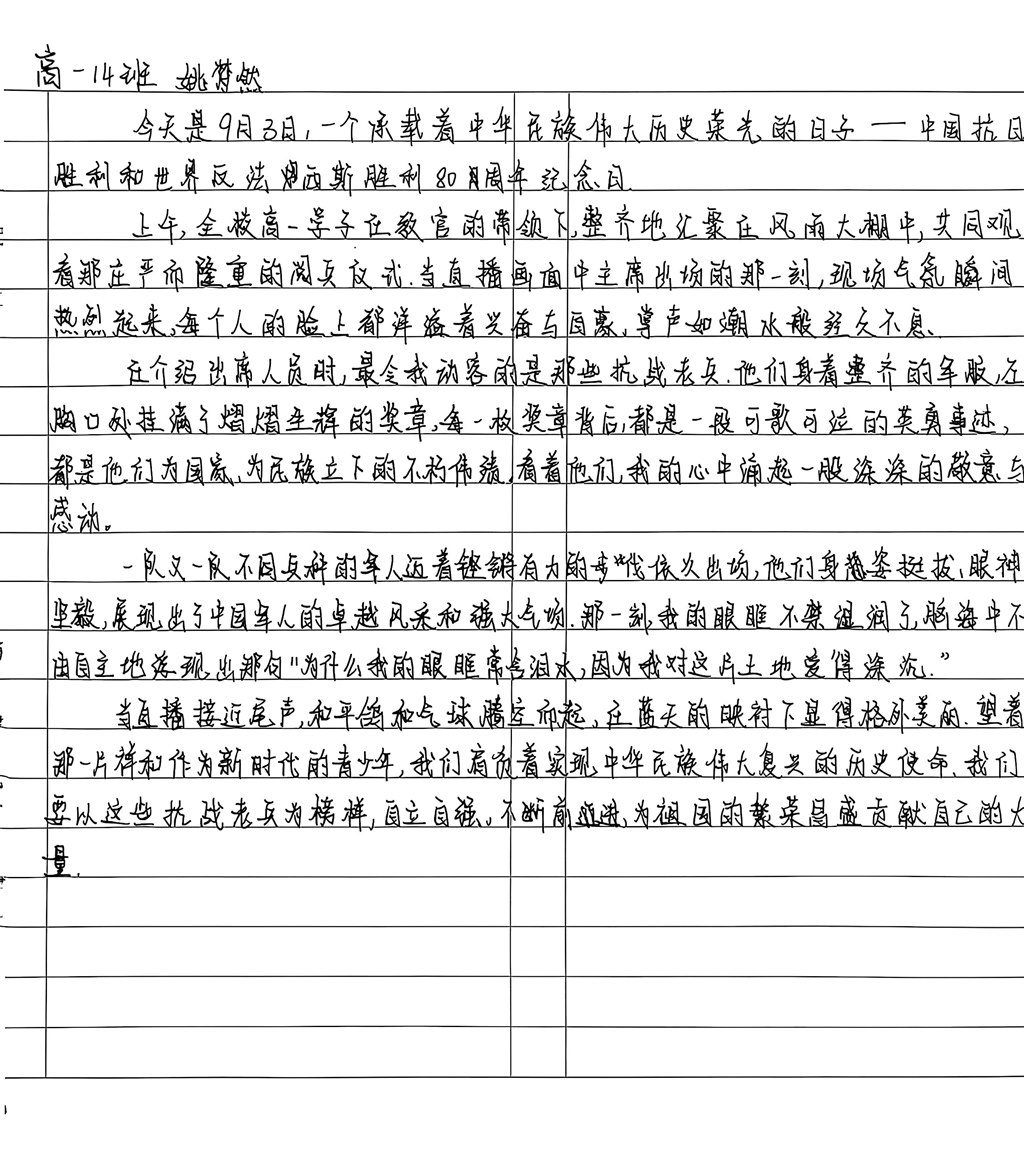 高一14班 姚梦然
今天是9月3日,一个承载着中华民族伟大历史荣光的日子——中国抗日
胜利和世界反法西斯胜利80周年纪念日.
上午,全校高一学子在教官的带领下,整齐地汇聚在风雨大棚中,共同观
看那庄严而隆重的阅兵仪式.当直播画面中主席出场的那一刻,现场气氛瞬间
热烈起来,每个人的脸上都洋溢着兴奋与自豪,掌声如潮水般经久不息.
在介绍出席人员时,最令我动容的是那些抗战老兵.他们身着整齐的军服,左
胸口处挂满了熠熠生辉的奖章,每一枚奖章背后,都是一段可歌可泣的英勇事迹,
都是他们为国家,为民族立下的不朽伟绩.看着他们,我的心中涌起一股深深的敬意与
感动。
一队又一队不同兵种的军人迈着铿锵有力的步伐依次出场,他们身姿挺拔,眼神
坚毅,展现出了中国军人的卓越风采和强大气场.那一刻,我的眼眶不禁湿润了,脑海中不
由自主地浮现出那句"为什么我的眼眶常含泪水,因为我对这片土地爱得深沉."
当直播接近尾声,和平鸽和气球腾空而起,在蓝天的映衬下显得格外美丽.望着
那一片祥和作为新时代的青少年,我们肩负着实现中华民族伟大复兴的历史使命.我们
要以这些抗战老兵为榜样,自立自强。不断前进,为祖国的繁荣昌盛贡献自己的大
量.